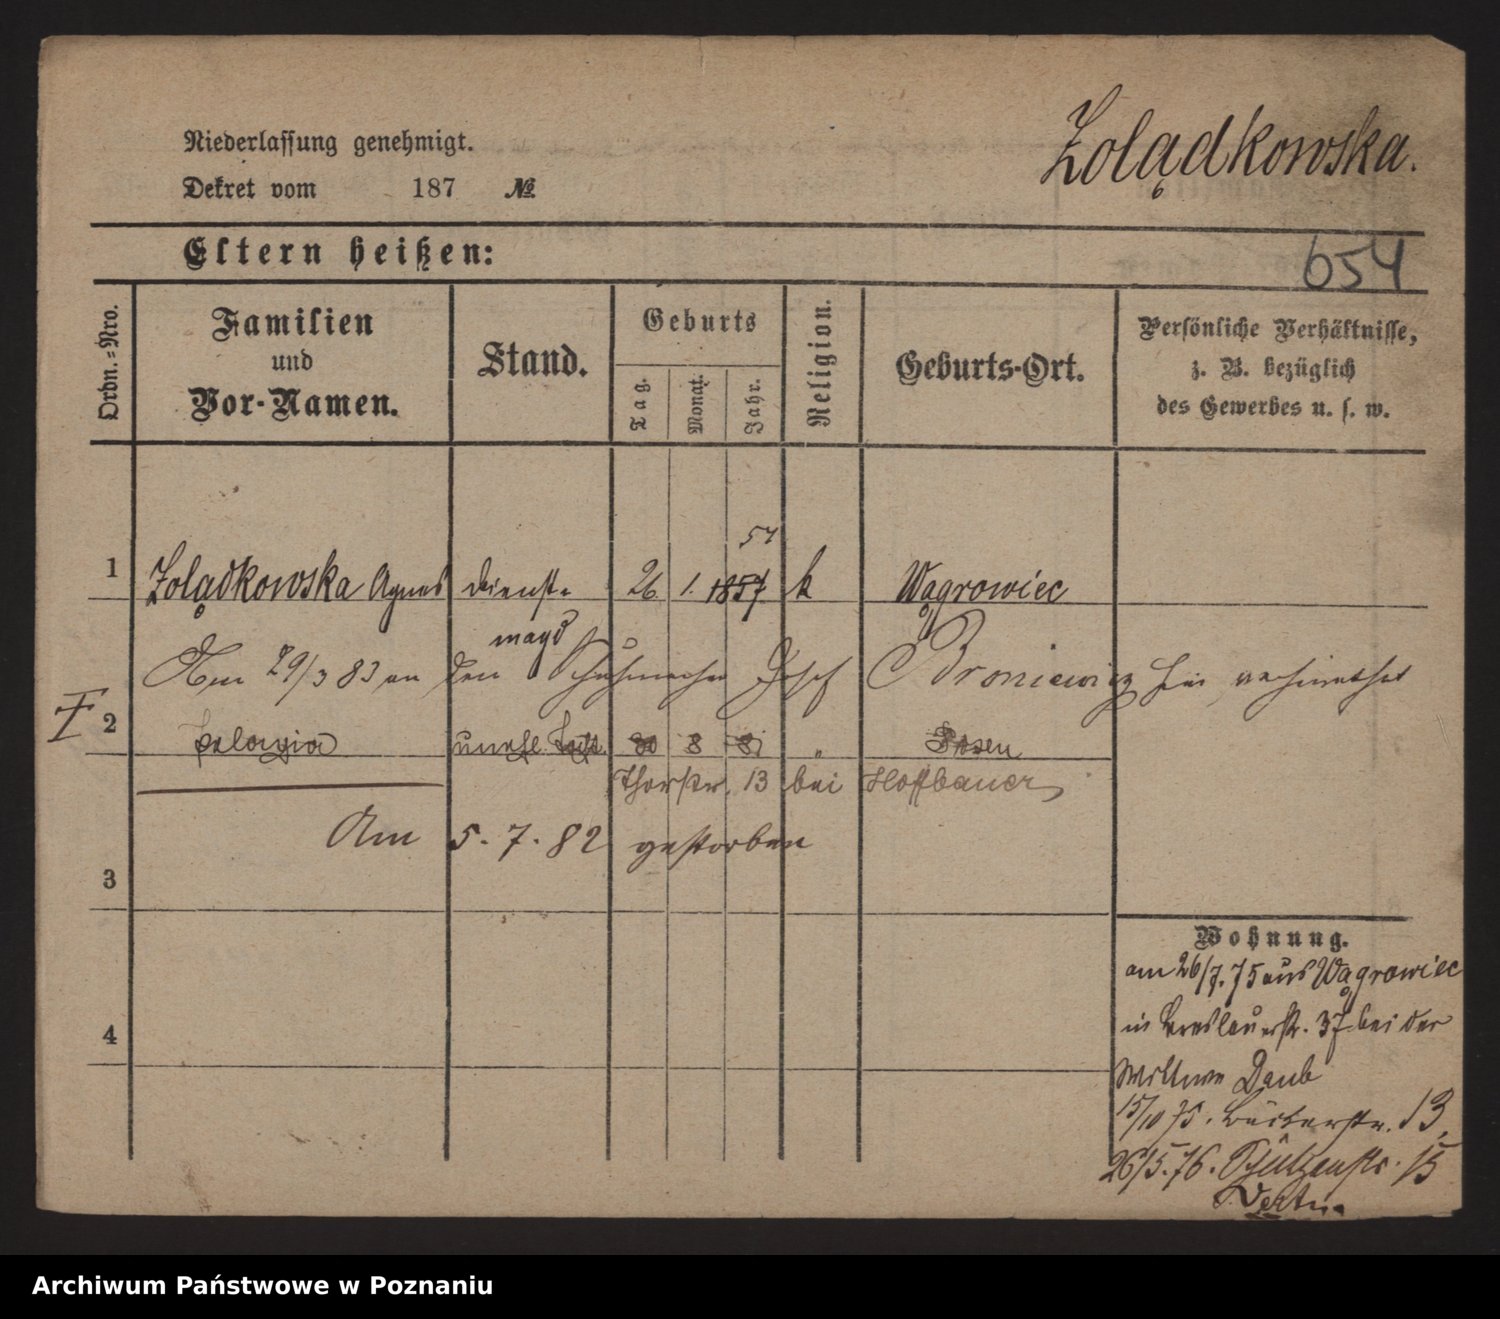 Niederlassung genehmigt.
Dekret vom 187 №
Żolądkowska.
Eltern heißen:
654
Ordn.=Nro.
Familien
und
Vor-Namen.
Stand.
Geburts
Tag.
Monat.
Jahr.
Religion.
Geburts-Ort.
Persönliche Verhältnisse,
z. B. bezüglich
des Gewerbes u. s. w.
57
1 Żolądkowska Agnes Dienst- 26 1. 1857 k Wągrowiec
magd
Am 29/3 83 an den Schuhmacher Josef Broniewicz hier verheirathet
2 Pelagia unehl. Tocht. 30 8 81 " Posen
Thorstr. 13 bei Hoffbauer
Am 5. 7. 82 gestorben
3
4
Wohnung.
am 26/7. 75 aus Wągrowiec
in Breslauerstr. 37 bei der
Wittwe Daub
15/10 75. Bäckerstr. 13,
26/5. 76. Schützenstr. 15
Archiwum Państwowe w Poznaniu